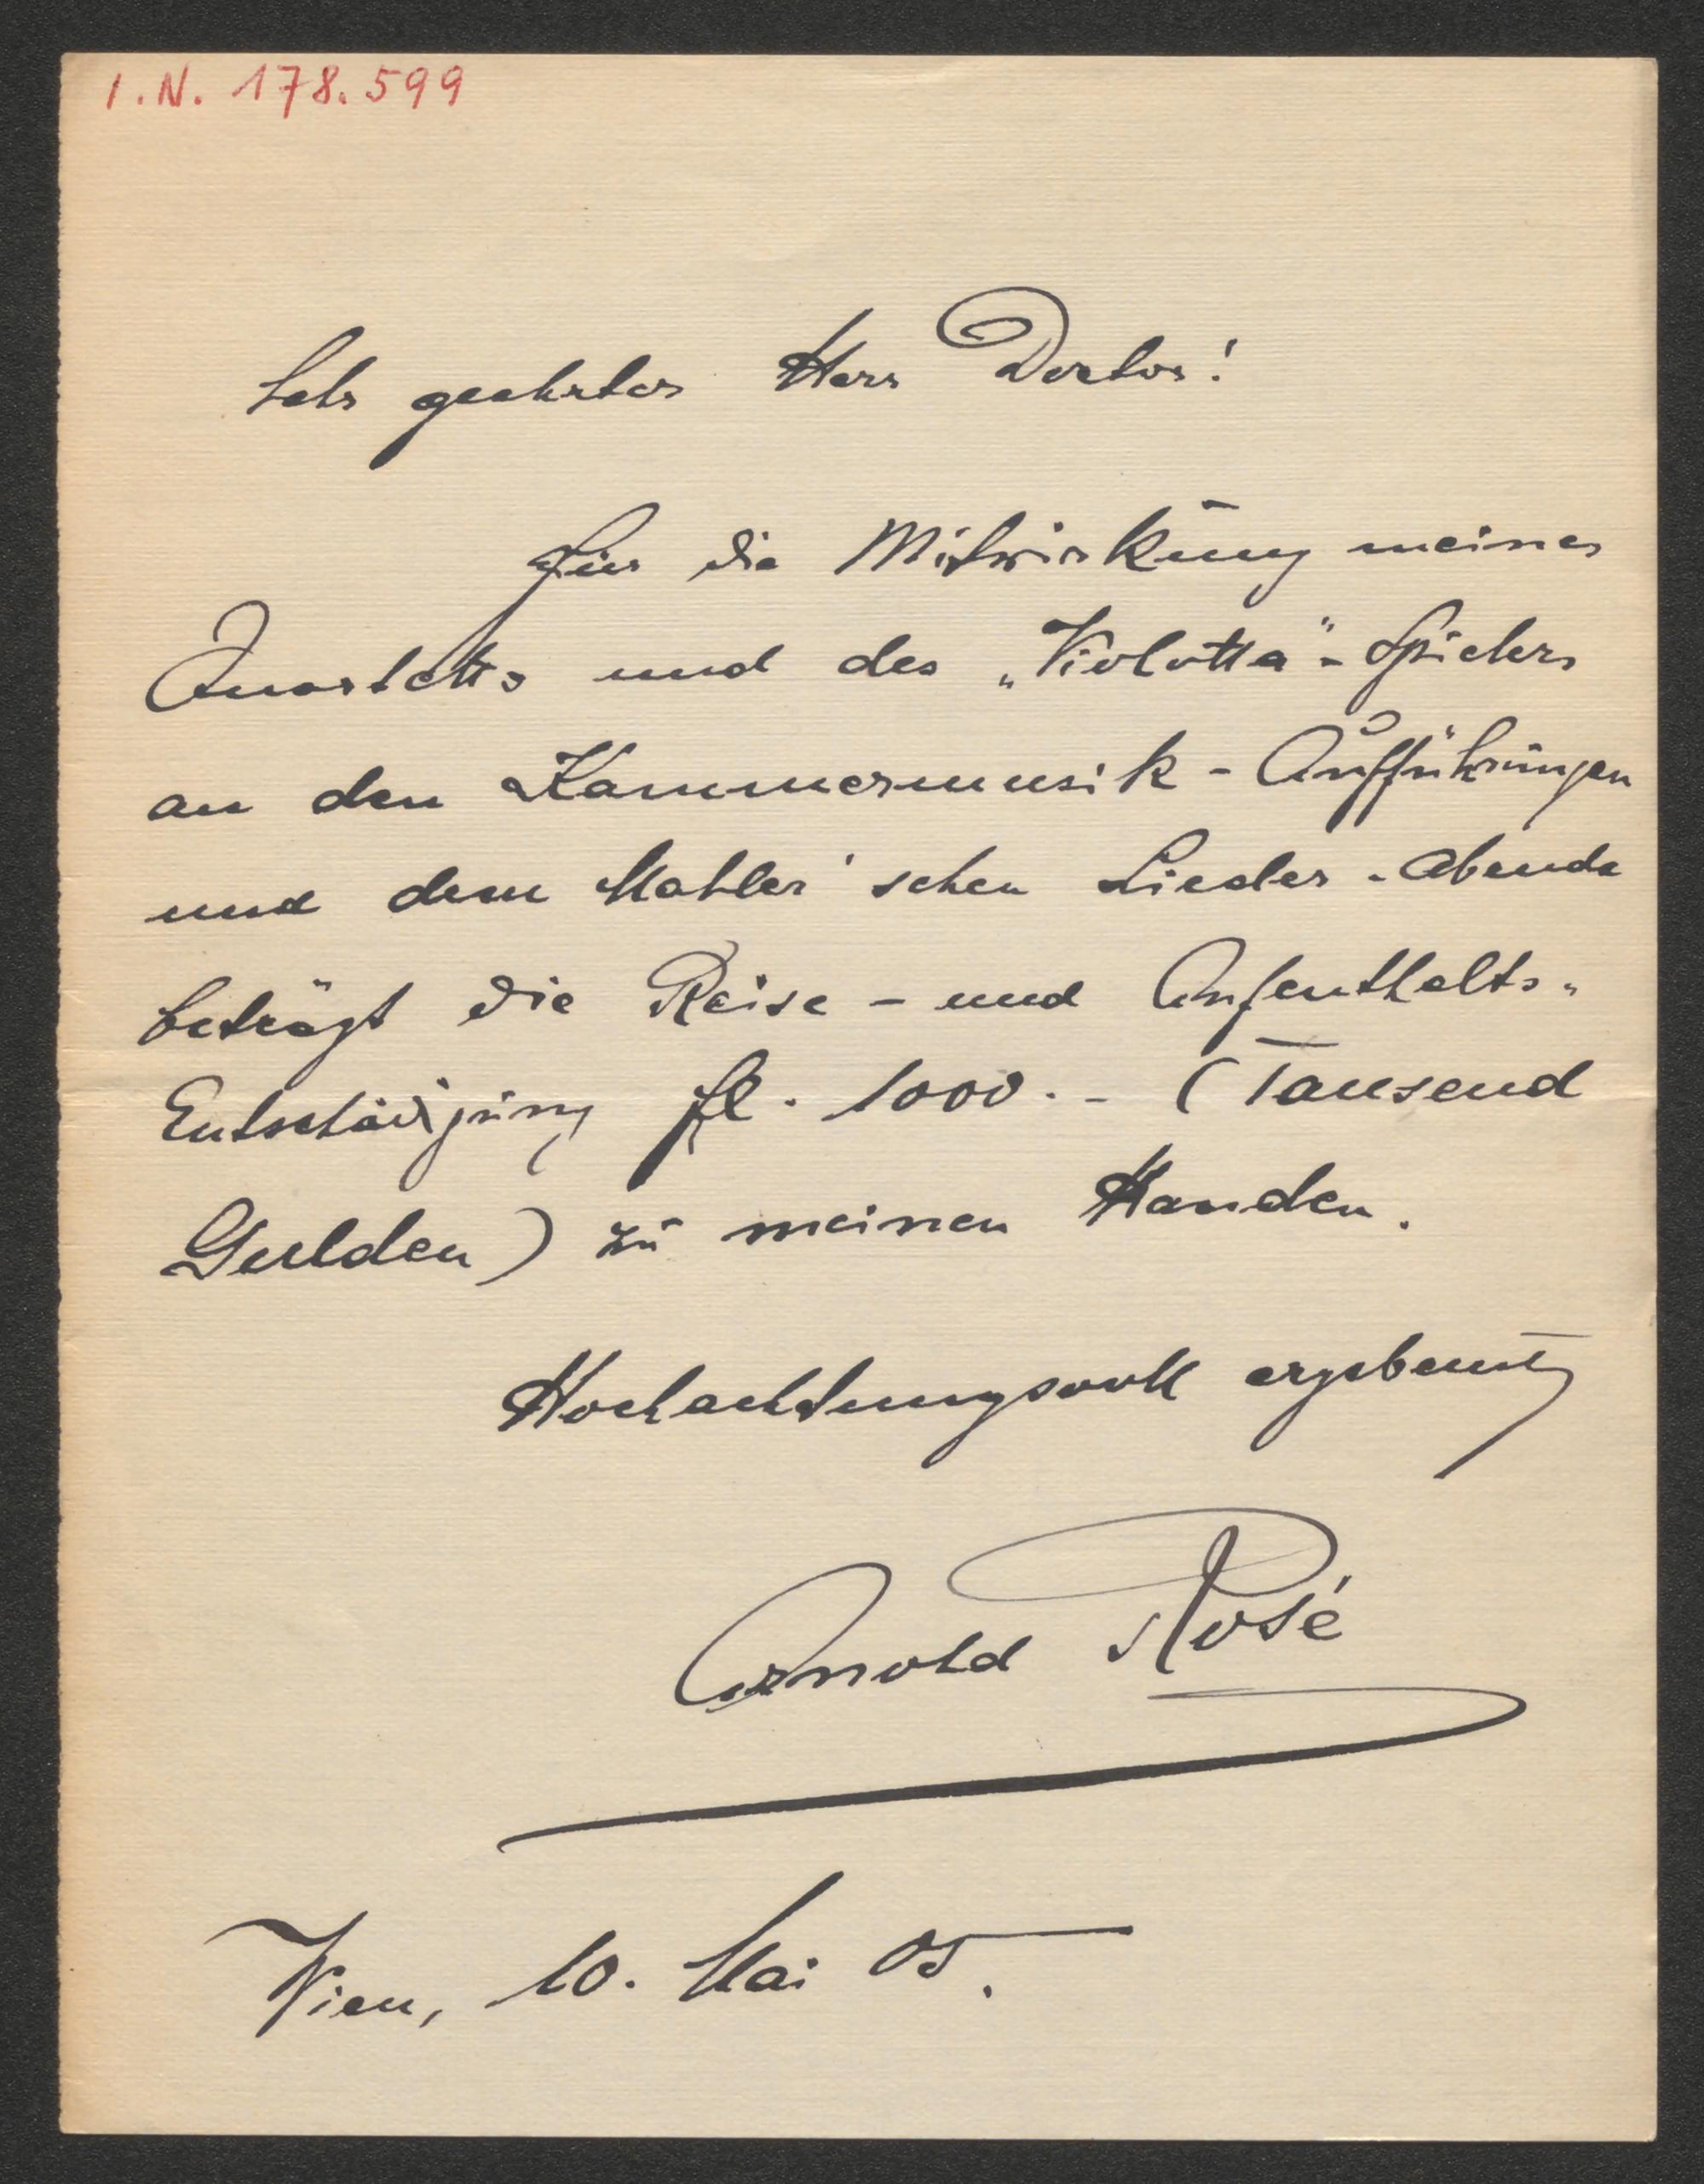 I.N. 178.599
Sehr geehrter Herr Doctor!
Für die Mitwirkung meines
Quartetts und des „Violotta"-Spielers
an den Kammermusik-Aufführungen
und dem Mahler'schen Lieder-Abende
beträgt die Reise- und Aufenthalts-
Entschädigung fl. 1000.- (Tausend
Gulden) zu meinen Handen.
Hochachtungsvoll ergebenst
Arnold Rosé
Wien, 10. Mai 05.